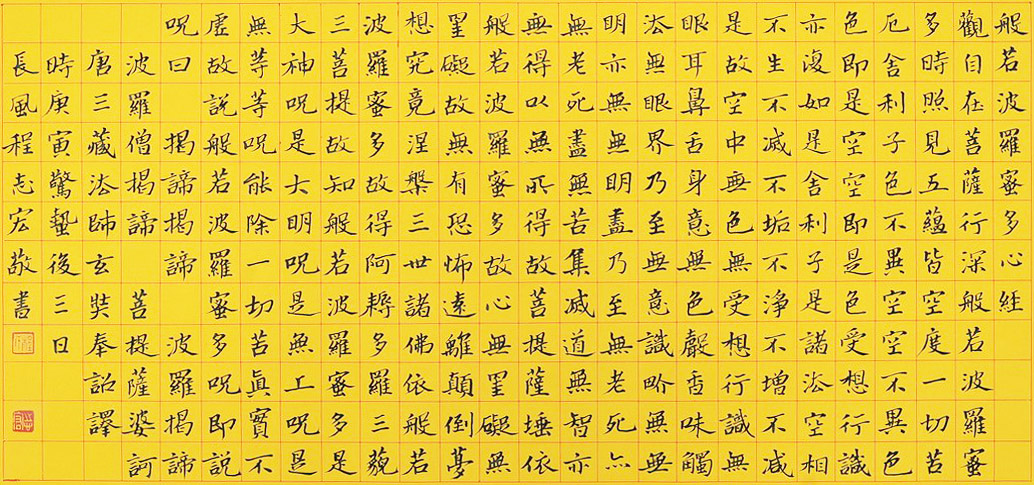 般若波羅蜜多心經
觀自在菩薩行深般若波羅蜜
多時照見五蘊皆空度一切苦
厄舍利子色不異空空不異色
色即是空空即是色受想行識
亦復如是舍利子是諸法空相
不生不滅不垢不淨不增不減
是故空中無色無受想行識無
眼耳鼻舌身意無色聲香味觸
法無眼界乃至無意識界無無
明亦無無明盡乃至無老死亦
無老死盡無苦集滅道無智亦
無得以無所得故菩提薩埵依
般若波羅蜜多故心無罣礙無
罣礙故無有恐怖遠離顛倒夢
想究竟涅槃三世諸佛依般若
波羅蜜多故得阿耨多羅三藐
三菩提故知般若波羅蜜多是
大神呪是大明呪是無上呪是
無等等呪能除一切苦真實不
虛故說般若波羅蜜多呪即說
呪曰 揭諦揭諦 波羅揭諦
波羅僧揭諦 菩提薩婆訶
唐三藏法師玄奘奉詔譯
時庚寅驚蟄後三日
長風程志宏敬書